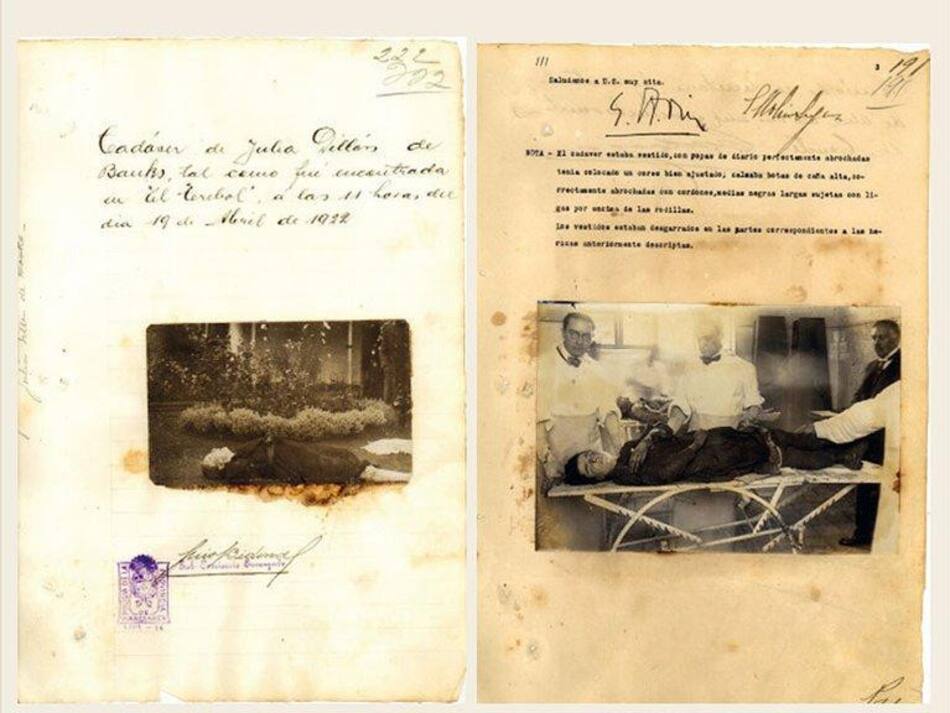 222
202
Cadáver de Julia Dillón de
Banks, tal como fué encontrada
en "El Terebol", á las 11 horas, del
día 19 de Abril de 1922
Sub Comisario Encargado
DE
111
3
191
Saludamos a U.S. muy atta.
NOTA - El cadaver estaba vestido,con popas de diario perfectamente abrochadas
tenia colocado un corse bien ajustado; calzaba botas de caña alta,co-
rrectamente abrochadas con cordones,medias negras largas sujetas con li-
gas por encima de las rodillas.
Los vestidos estaban desgarrados en las partes correspondientes a las he-
ridas anteriormente descriptas.